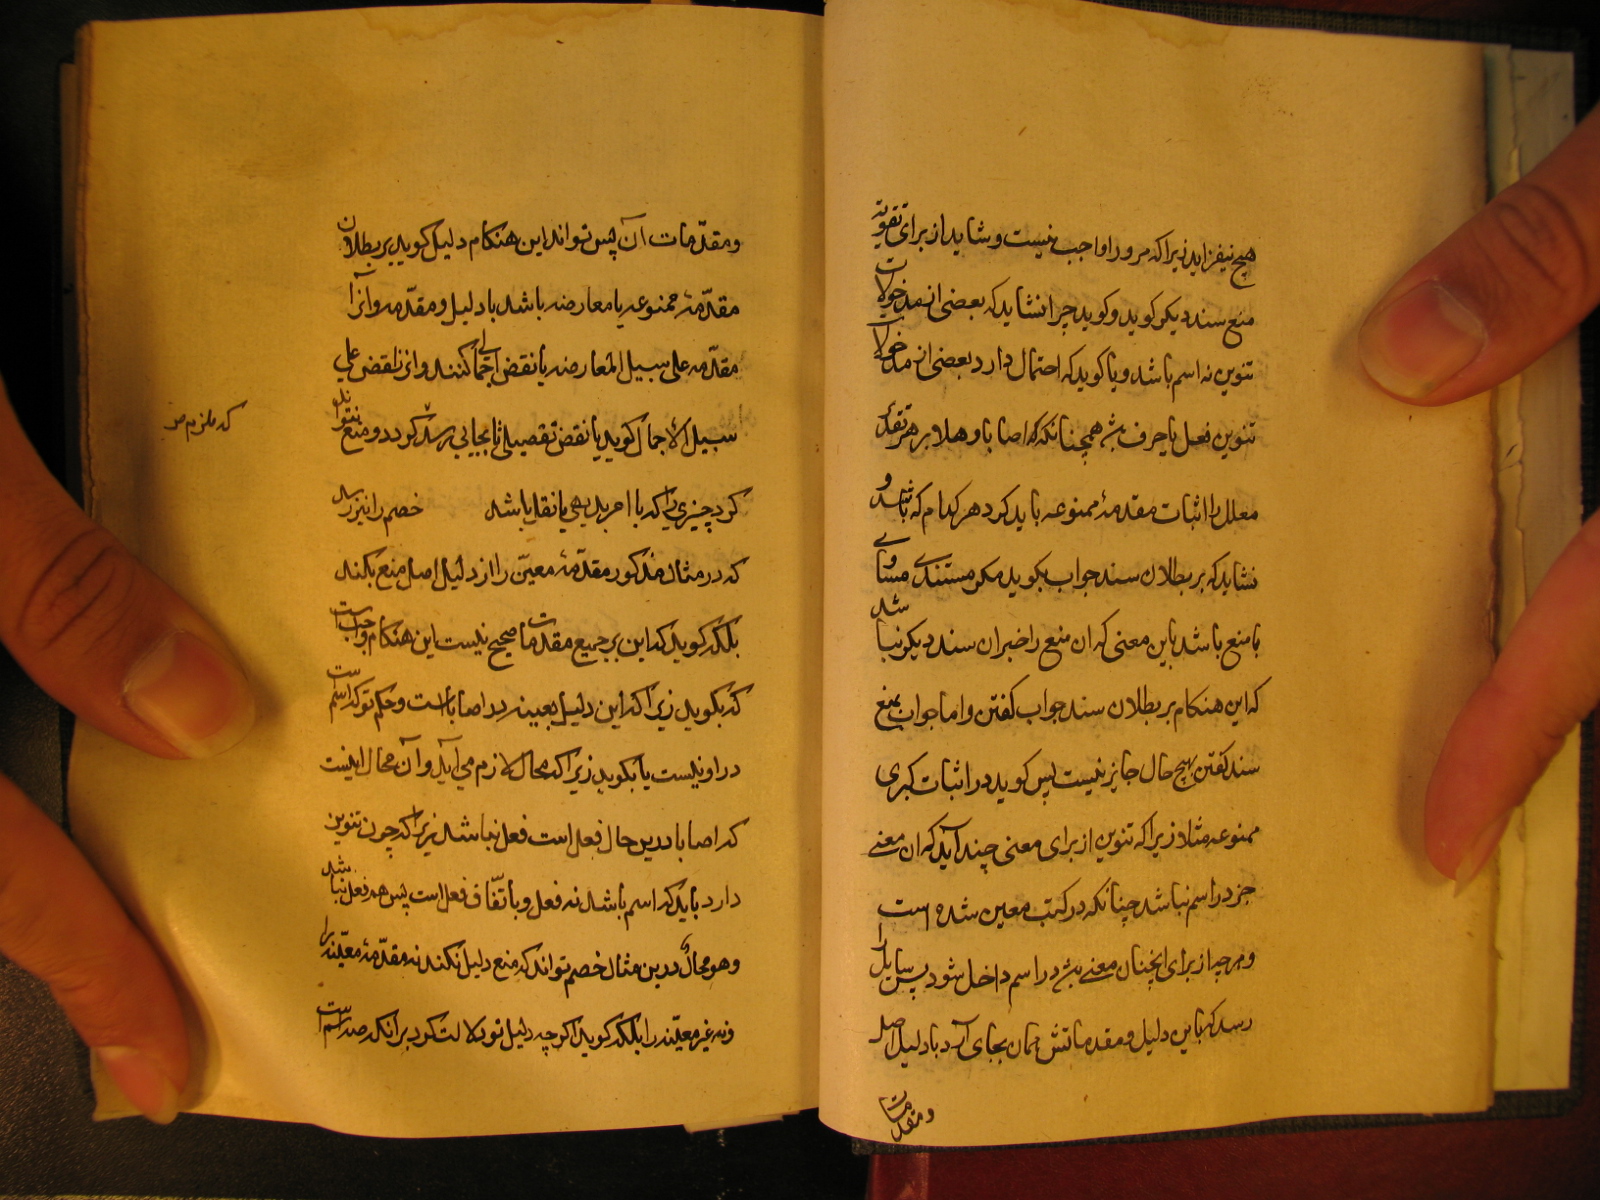 هیچ نیفزاید زیرا که مر ورا واجب نیست و شاید از برای تقویة
منع سند دیکر کوید و کوید چرا نشاید که بعضی از مدخولات
تنوین نه اسم باشد و یا کوید که احتمال دارد بعضی از مدخولات
تنوین فعل یا حرف همچنانکه اصابا و هلا و بر هر تقدیر
معلل را اثبات مقدمهٔ ممنوعه باید کرد هر کدام که باشد و
نشاید که بر بطلان سند جواب بکوید مکر مستندی مساوی
با منع باشد باین معنی که ان منع را خبر ان سند دیکر نباشد
که این هنکام بر بطلان سند جواب کفتن و اما جواب بمنع
سند کفتن بهیچ حال جایز نیست پس کوید در اثبات کبری
ممنوعه مثلا زیرا که تنوین از برای معنی چند آید که ان معنی
جز در اسم نباشد چنانکه در کتب معین شده است
و هر چه از برای انچنان معنی در اسم داخل شود پس سایل را
رسد که باین دلیل و مقدماتش همان بجای آرد با دلیل اصل
و مقدمات
و مقدّمات آن پس تواند این هنکام دلیل کوید بر بطلان
مقدّمهٔ ممنوعه یا معارضه باشد با دلیل و مقدّمه و انرا
مقدّمه علی سبیل المعارضه یا نقض اجمالی کنند و انرا نقض علی
سبیل الاجمال کوید یا نقض تفصیلی تا بجایی رسد کردد و منع نتواند
کرد چیزی را که با امر بدیهی یا نقل باشد خصم را نیز رسد
که در مثال مذکور مقدّمهٔ معیّن را از دلیل اصل منع بکند
بلکه کوید که این بر جمیع مقدمات صحیح نیست این هنکام واجب است
که بکوید زیرا که این دلیل بعینه در اصابا است و حکم تو که اسم است
در او نیست یا بکوید زیرا که محال لازم می آید و آن محال اینست
که اصابا درین حال فعل است فعل نباشد زیرا که چون تنوین
دارد باید که اسم باشد نه فعل و باتّفاق فعل است پس هم فعل نباشد
و هو محال و درین مثال خصم تواند که منع دلیل نکند نه مقدّمهٔ معیّنه را
و نه غیر معیّنه را بلکه کوید اکر چه دلیل تو دلالت کرد بر آنکه صه اسم است
که ملزم